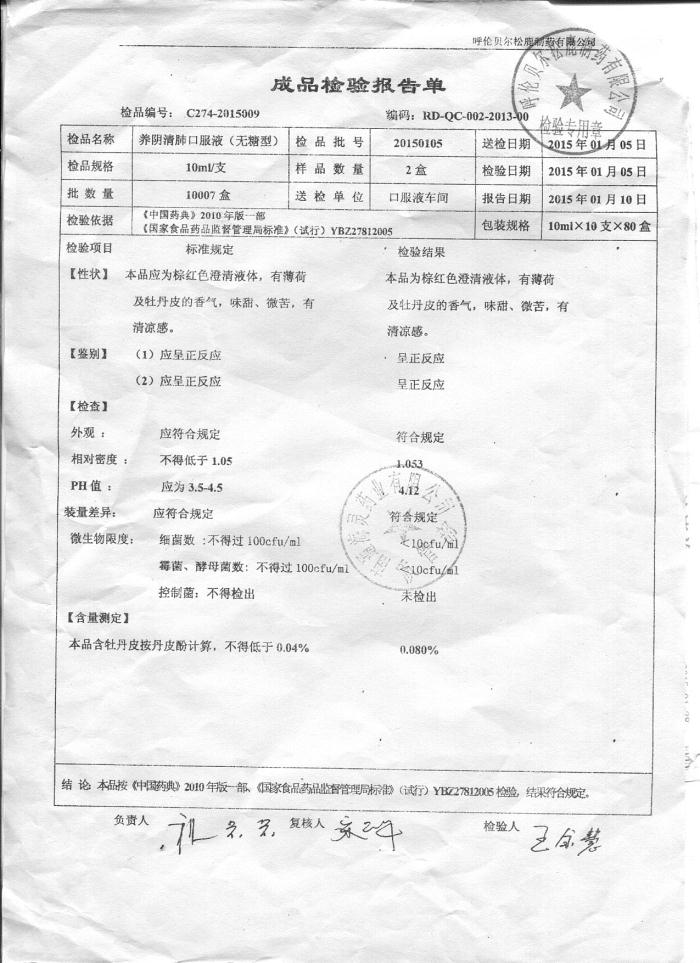 呼伦贝尔松鹿制药有限公司
成品检验报告单
检品编号: C274-2015009 编码: RD-QC-002-2013-00
呼伦贝尔松鹿制药有限公司
检验专用章
检品名称 养阴清肺口服液(无糖型) 检品批号 20150105 送检日期 2015年01月05日
检品规格 10ml/支 样品数量 2盒 检验日期 2015年01月05日
批数量 10007盒 送检单位 口服液车间 报告日期 2015年01月10日
检验依据 《中国药典》2010年版一部
《国家食品药品监督管理局标准》(试行)YBZ27812005 包装规格 10ml×10支×80盒
检验项目 标准规定 检验结果
【性状】 本品应为棕红色澄清液体,有薄荷 本品为棕红色澄清液体,有薄荷
及牡丹皮的香气,味甜、微苦,有 及牡丹皮的香气,味甜、微苦,有
清凉感。 清凉感。
【鉴别】 (1)应呈正反应 呈正反应
(2)应呈正反应 呈正反应
【检查】
外观: 应符合规定 符合规定
相对密度: 不得低于1.05 1.053
PH值: 应为3.5-4.5 4.12
装量差异: 应符合规定 符合规定
微生物限度: 细菌数:不得过100cfu/ml <10cfu/ml
霉菌、酵母菌数:不得过100cfu/ml <10cfu/ml
控制菌:不得检出 未检出
【含量测定】
本品含牡丹皮按丹皮酚计算,不得低于0.04% 0.080%
结论:本品按《中国药典》2010年版一部、《国家食品药品监督管理局标准》(试行)YBZ27812005检验,结果符合规定。
负责人 复核人 检验人 王金慧